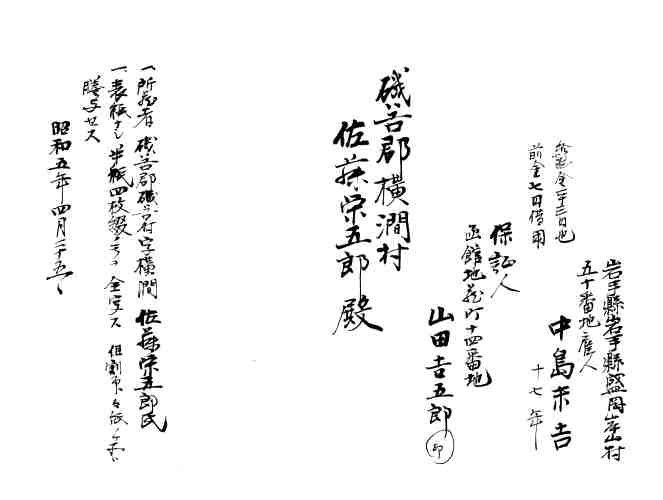 岩手縣岩手縣盛岡岸山村
五十番地雇人
中島末吉
十七年
給料金二十三円也
前金七円借用
保証人
函館地蔵町十四番地
山田吉五郎
印
磯谷郡横澗村
佐藤栄五郎殿
一、所蔵者 磯谷郡磯谷村字横澗 佐藤栄五郎氏
一、表紙ナシ半紙四枚綴 全写ス 但割印
謄写セス
昭和五年四月二十五